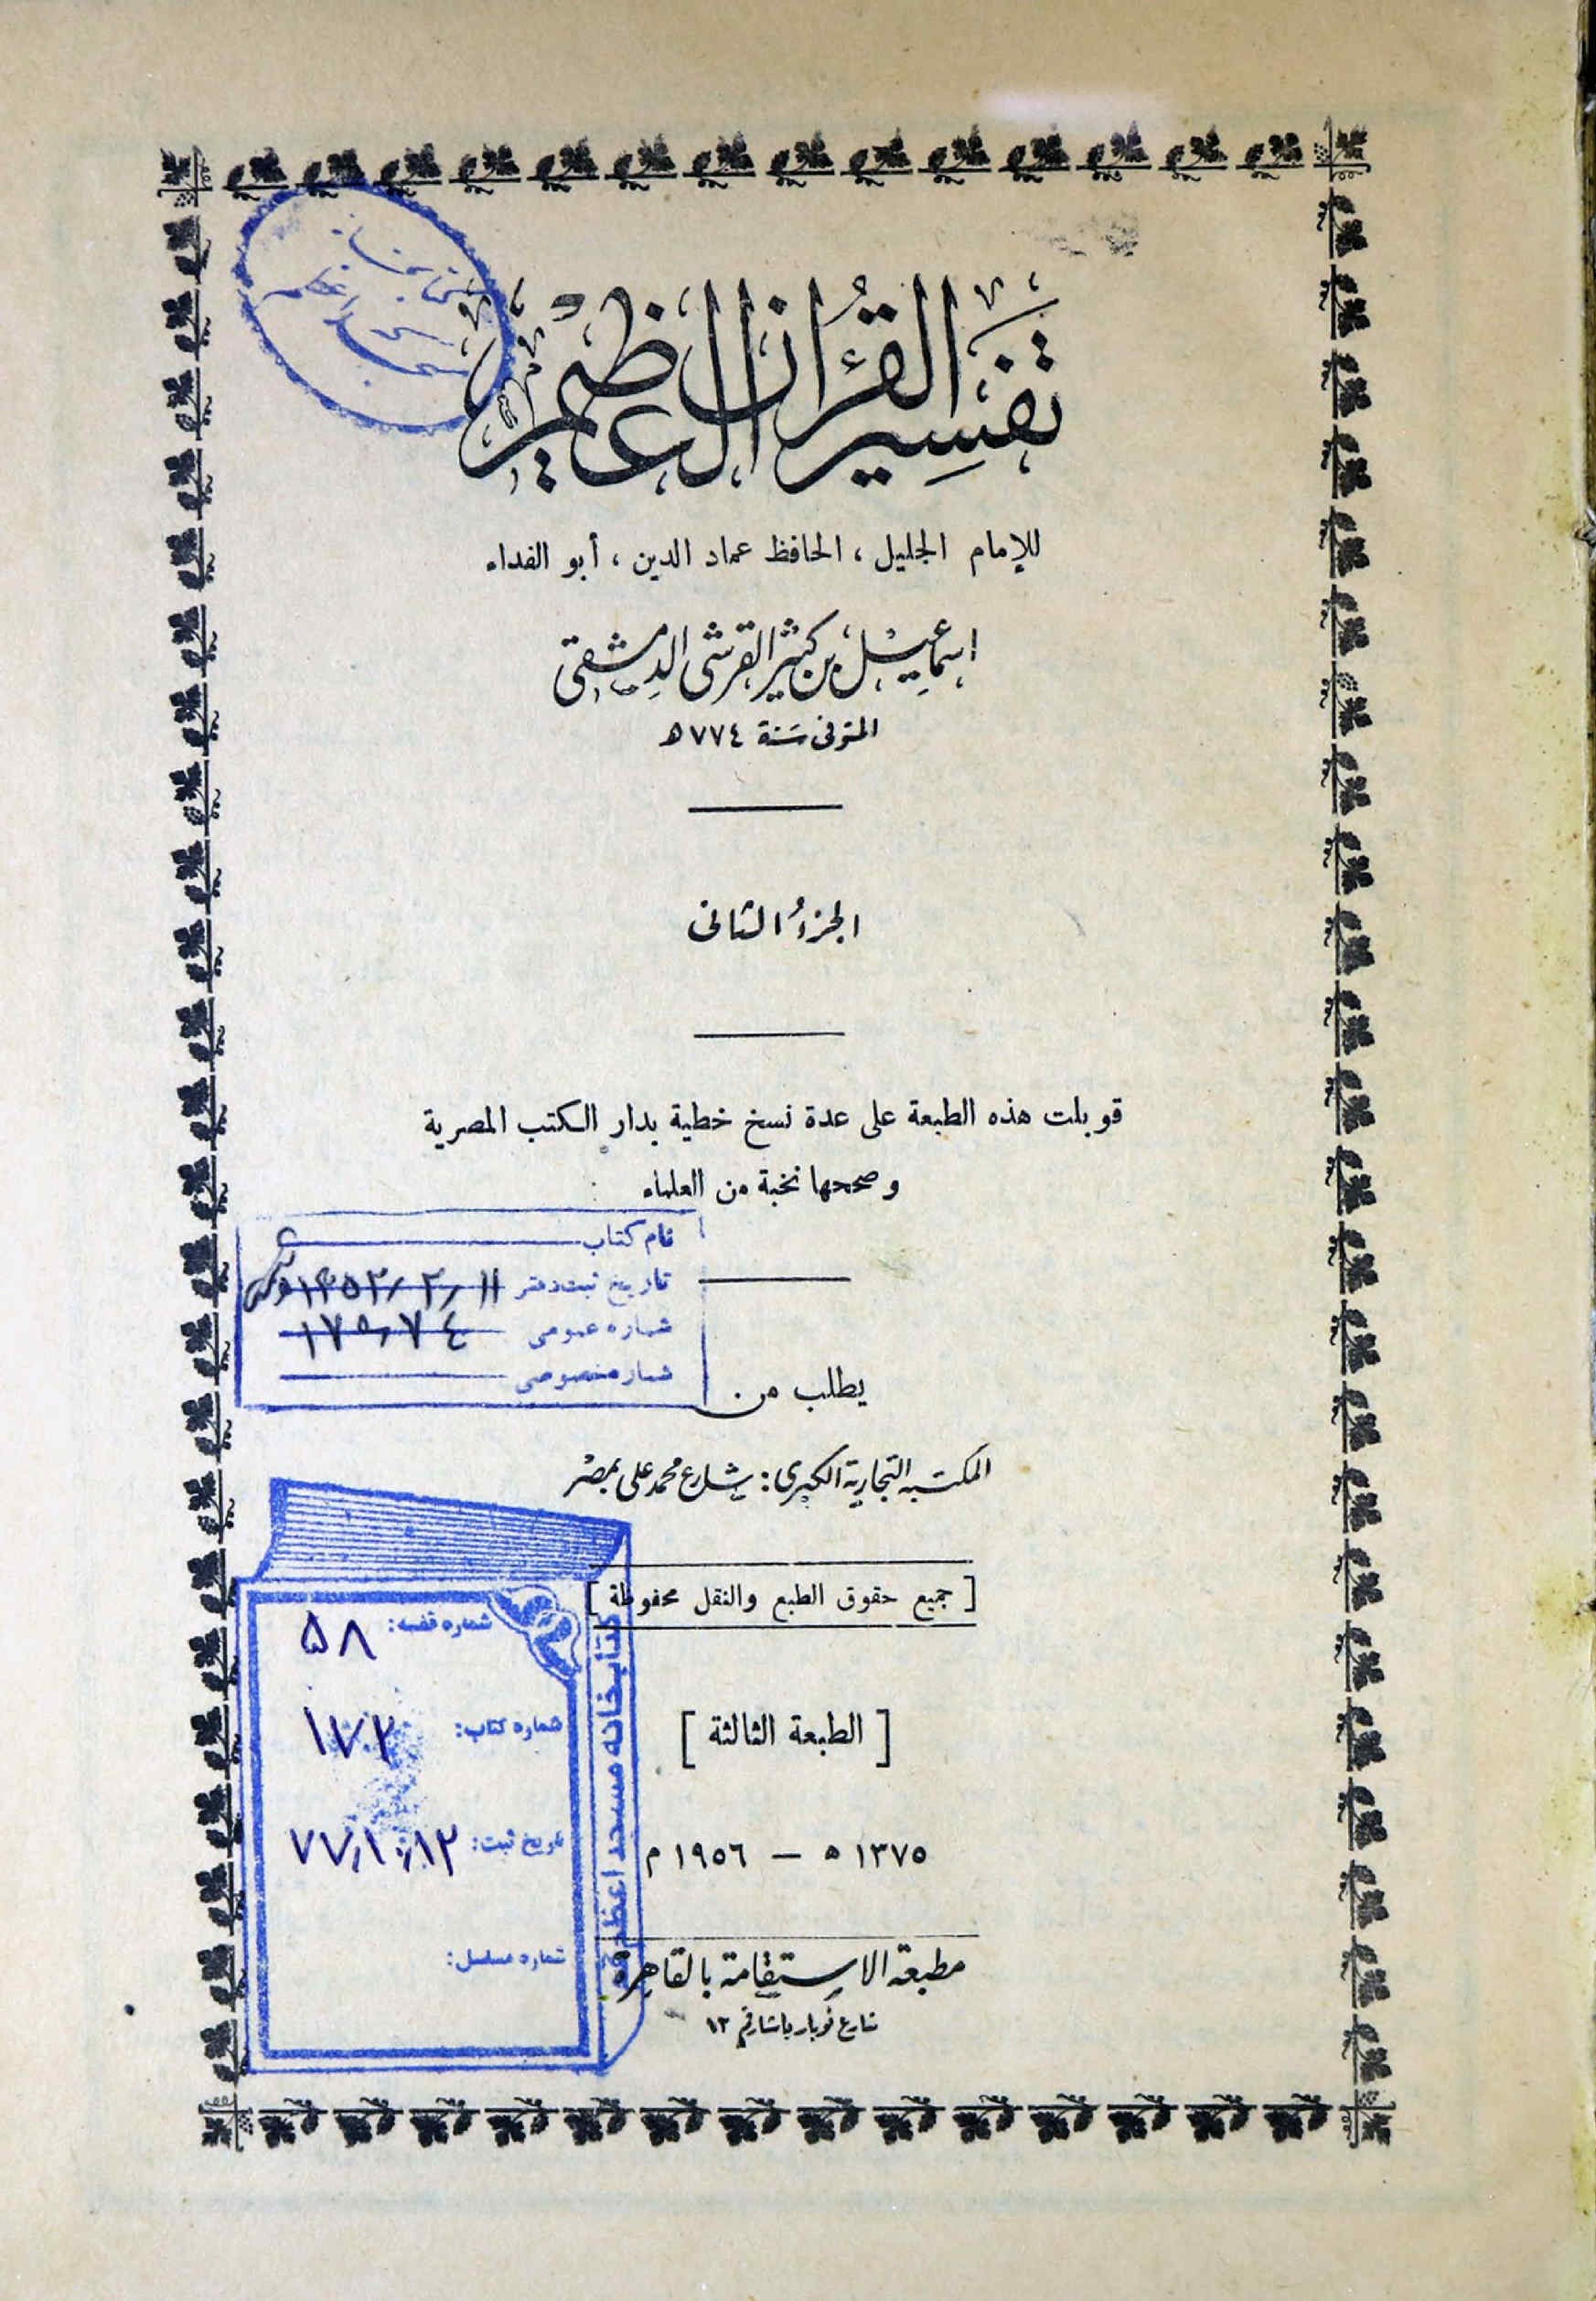 تفسير القرآن العظيم
للإمام الجليل ، الحافظ عماد الدين ، أبو الفداء
إسماعيل بن كثير القرشى الدمشقى
المتوفى سنة ٧٧٤ هـ
الجزء الثانى
قوبلت هذه الطبعة على عدة نسخ خطية بدار الكتب المصرية
وصححها نخبة من العلماء
نام كتاب
تاريخ ثبت دفتر
شماره عمومى ١٧٥٠٧٤
شماره خصوصى
يطلب من
المكتبة التجارية الكبرى : شارع محمد على بمصر
[ جميع حقوق الطبع والنقل محفوظة ]
[ الطبعة الثالثة ]
١٣٧٥ ه — ١٩٥٦ م
مطبعة الاستقامة بالقاهرة
شارع نوبار باشا رقم ١٢
كتابخانه مسجد اعظم قم
شماره قفسه: ۵۸
شماره كتاب: ۱۷۲
تاريخ ثبت: ۷۷/۱۰/۱۲
شماره مسلسل: